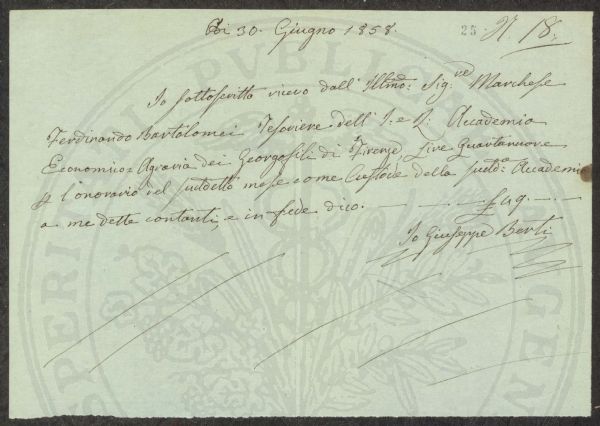 Di 30. Giugno 1858. 25 N. 18.
Io sottoscritto ricevo dall' Illmo: Sig:re Marchese
Ferdinando Bartolomei Tesoriere dell' I. e R. Accademia
Economico Agraria dei Georgofili di Firenze, Lire Quarantanove
p l'onorario del suddetto mese come Custode della sud:a Accademia
a me dette contanti, e in fede dico. £ 49.
Io Giuseppe Berti